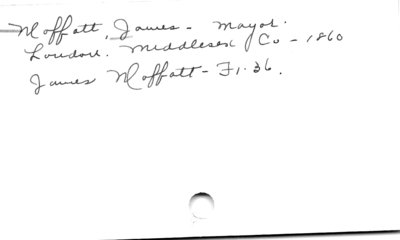 Moffatt, James - Mayor.
London. Middlesex Co - 1860
James Moffatt - F1.36.